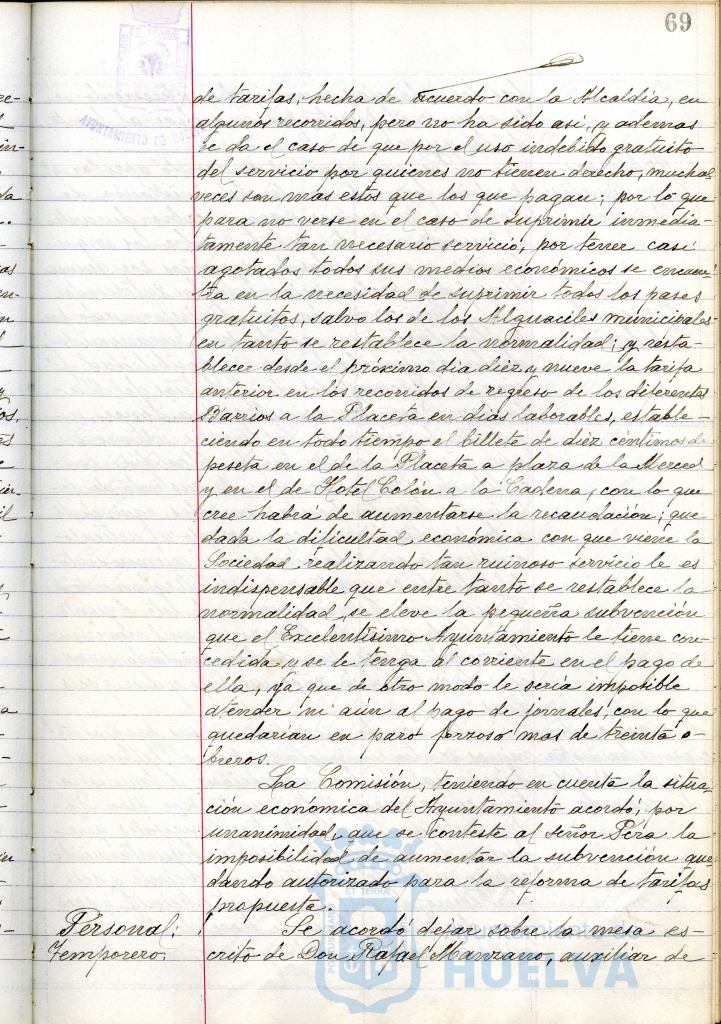 69
AYUNTAMIENTO DE
de tarifas, hecha de acuerdo con la Alcaldia, en
algunos recorridos, pero no ha sido asi, y ademas
se da el caso de que por el uso indebido gratuito
del servicio por quienes no tienen derecho, muchas
veces son mas estos que los que pagan; por lo que
para no verse en el caso de suprimir inmedia-
tamente tan necesario servicio, por tener casi
agotados todos sus medios económicos se encuen-
tra en la necesidad de suprimir todos los pases
gratuitos, salvo los de los Alguaciles municipales
en tanto se restablece la normalidad; y resta-
blecer desde el próximo dia diez y nueve la tarifa
anterior en los recorridos de regreso de los diferentes
Barrios a la Placeta en dias laborables, estable-
ciendo en todo tiempo el billete de diez céntimos de
peseta en el de la Placeta a plaza de la Merced
y en el de Hotel Colón a la Cadena, con lo que
cree habrá de aumentarse la recaudación; que
dada la dificultad económica con que viene la
Sociedad realizando tan ruinoso servicio le es
indispensable que entre tanto se restablece la
normalidad, se eleve la pequeña subvención
que el Excelentisimo Ayuntamiento le tiene con-
cedida y se le tenga al corriente en el pago de
ella, ya que de otro modo le seria imposible
atender ni aún al pago de jornales, con lo que
quedarian en paro forzoso mas de treinta o-
breros.
La Comisión, teniendo en cuenta la situa-
ción económica del Ayuntamiento acordó, por
unanimidad, que se conteste al Señor Pera la
imposibilidad de aumentar la subvención que-
dando autorizado para la reforma de tarifas
propuesta.
Personal:
Temporero.
Se acordó dejar sobre la mesa es-
crito de Don Rafael Manzano, auxiliar de
HUELVA